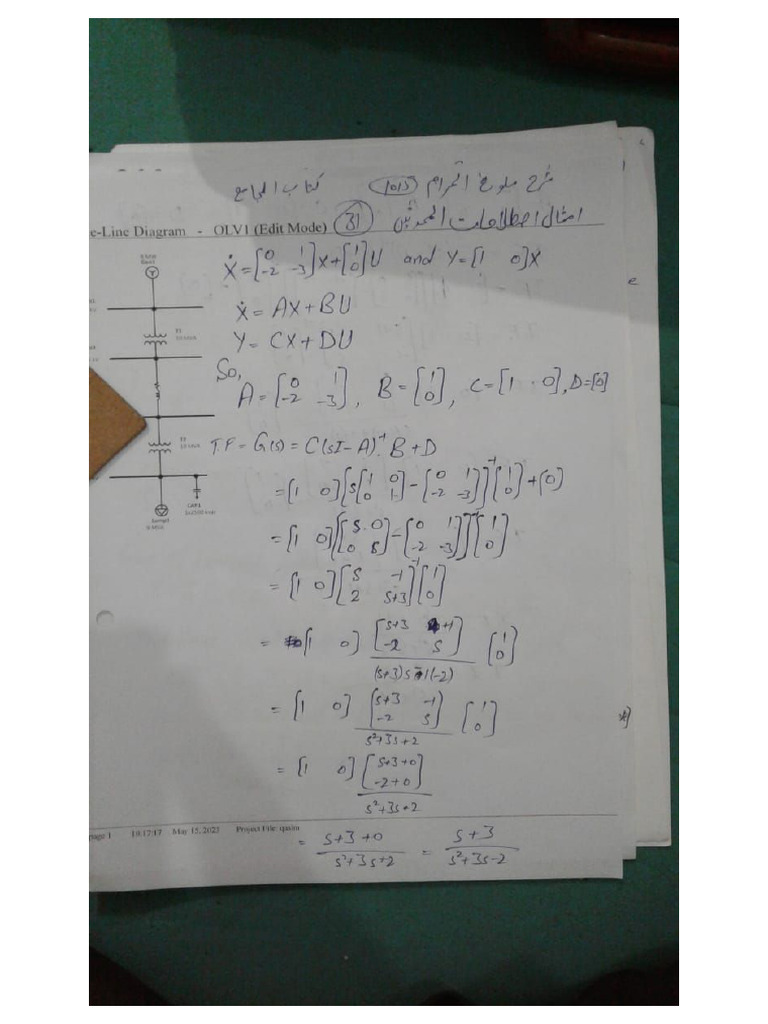 شرح بلوغ المرام 1015 كتاب الجامع
امثال اصطلاحات المحدثين 31
e-Line Diagram - OLV1 (Edit Mode)
Ẋ = [0 1 -2 -3]X + [1 0]U and Y = [1 0]X
Ẋ = AX + BU
Y = CX + DU
So,
A = [0 1 -2 -3], B = [1 0], C = [1 0], D = [0]
T.F = G(s) = C(sI-A)⁻¹ B + D
= [1 0][s[1 0 0 1] - [0 1 -2 -3]]⁻¹ [1 0] + [0]
= [1 0][[s 0 0 s] - [0 1 -2 -3]]⁻¹ [1 0]
= [1 0][s -1 2 s+3]⁻¹ [1 0]
= [1 0] [s+3 +1 -2 s] / (s+3)s-1(-2) [1 0]
= [1 0] [s+3 -1 -2 s] / s²+3s+2 [1 0]
= [1 0] [s+3+0 -2+0] / s²+3s+2
= s+3+0 / s²+3s+2 = s+3 / s²+3s-2
page 1 18:17:17 May 15, 2023 Project File: qasim
CAP1